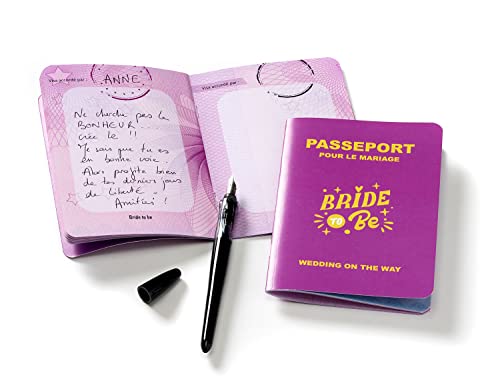 Visa accordé par :
ANNE
Ne cherche pas la
BONHEUR.....
crée le !!
Je sais que tu es
en bonne voie.
Alors profite bien
de tes derniers jours
de liberté
Amitiés !
Bride to be
Visa accordé par :
PASSEPORT
POUR LE MARIAGE
BRIDE
TO Be
WEDDING ON THE WAY